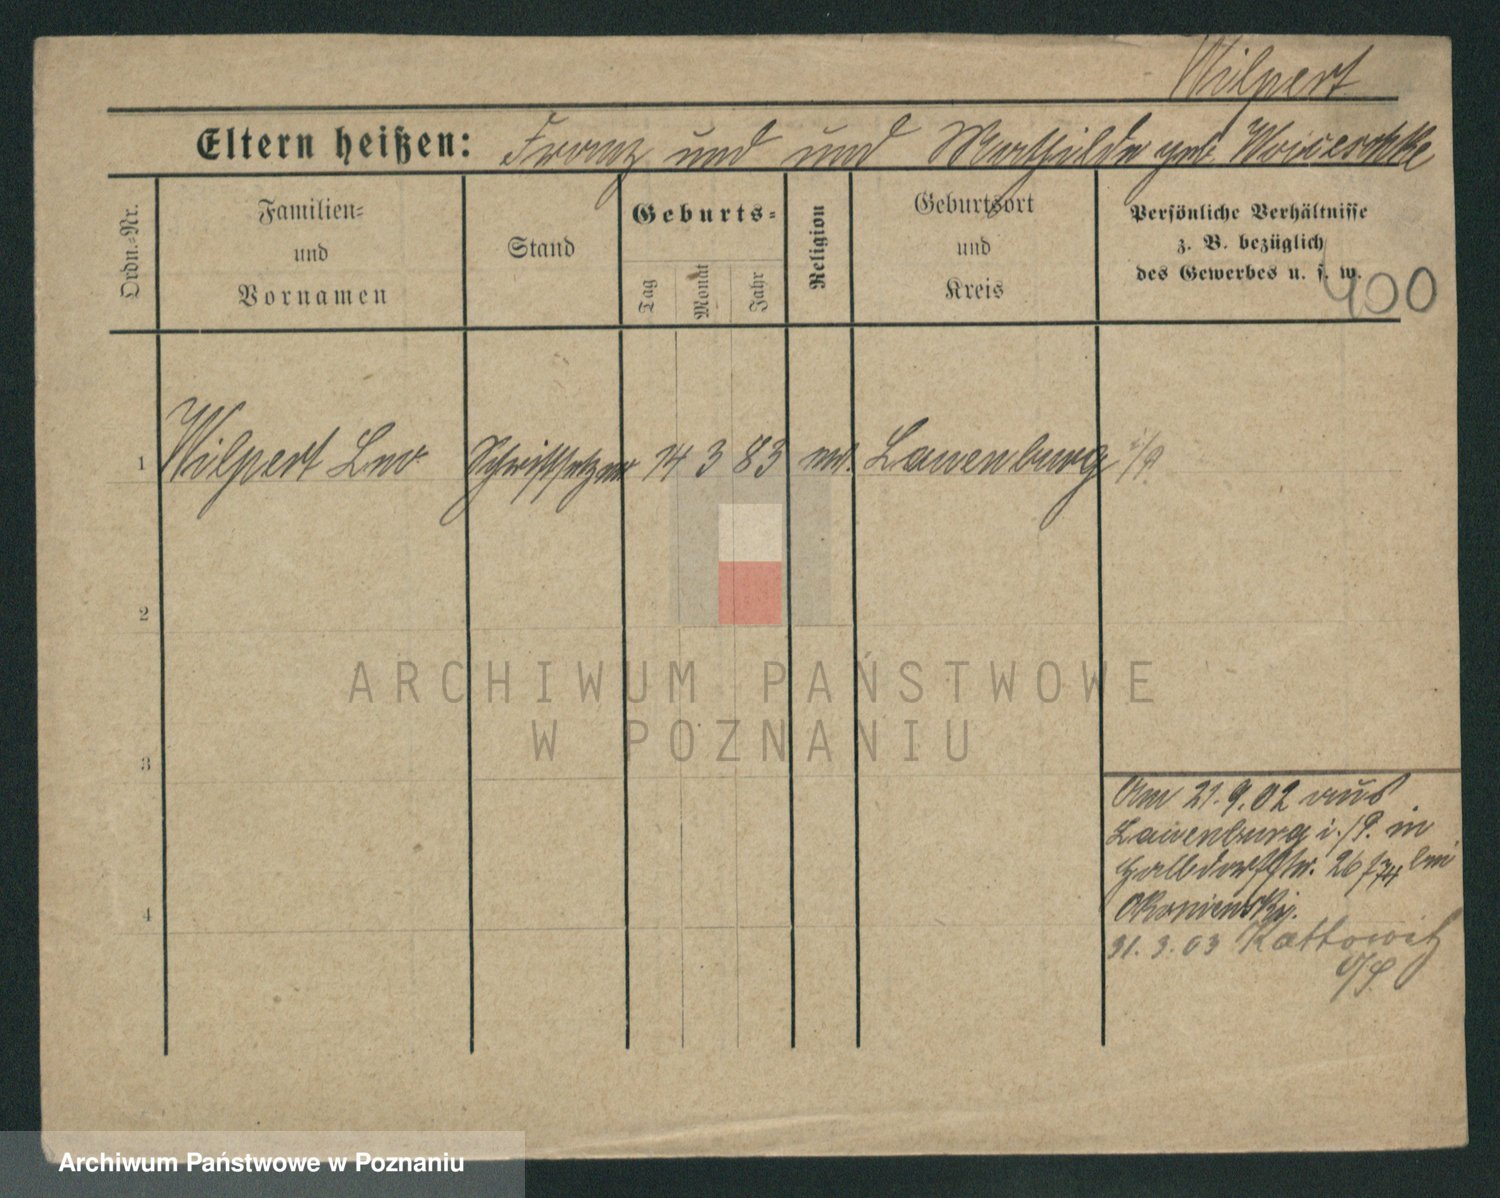 Wilpert
Eltern heißen: Franz und und Mathilde geb.
Ordn.-Nr.
Familien-
und
Vornamen
Stand
Geburts-
Tag
Monat
Jahr
Religion
Geburtsort
und
Kreis
Persönliche Verhältnisse
z. B. bezüglich
des Gewerbes u. s. w.
400
1 Wilpert Leo Schriftsetzer 14 3 83 ev. Lauenburg i/P.
2
3
4
Am 21.9.02 aus
Lauenburg i./P. in
Halbdorfstr. 26 bei
31.3.03 Kattowitz
O/S.
ARCHIWUM PAŃSTWOWE
W POZNANIU
Archiwum Państwowe w Poznaniu